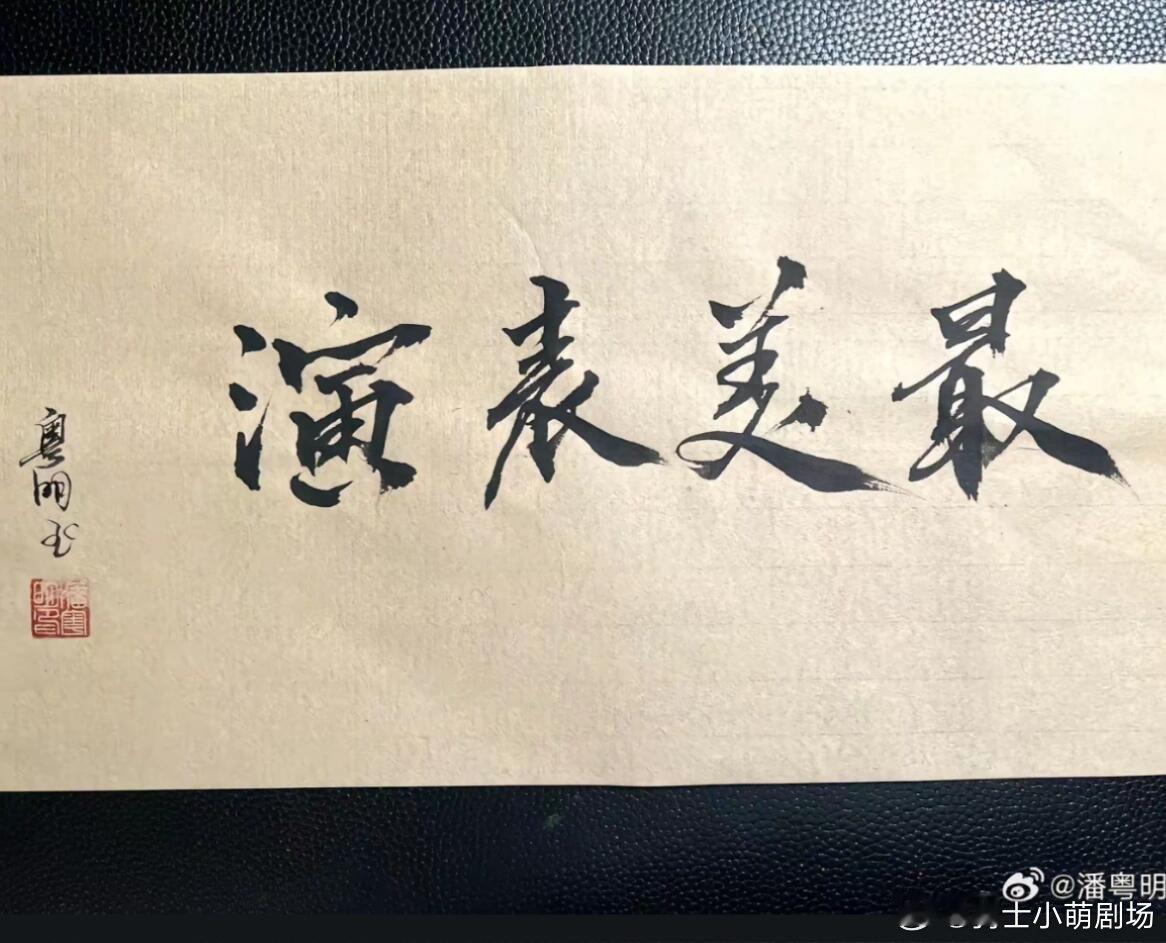 最美表演
粤明书
潘粤明印
@潘粤明
士小萌剧场